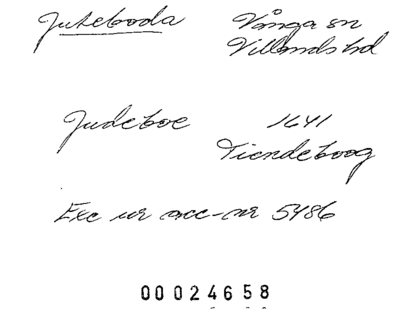 Juteboda Vånga sn
Villands hd
Judeboe 1641
Tiendeboog
Exc ur acc-nr 5486
00024658